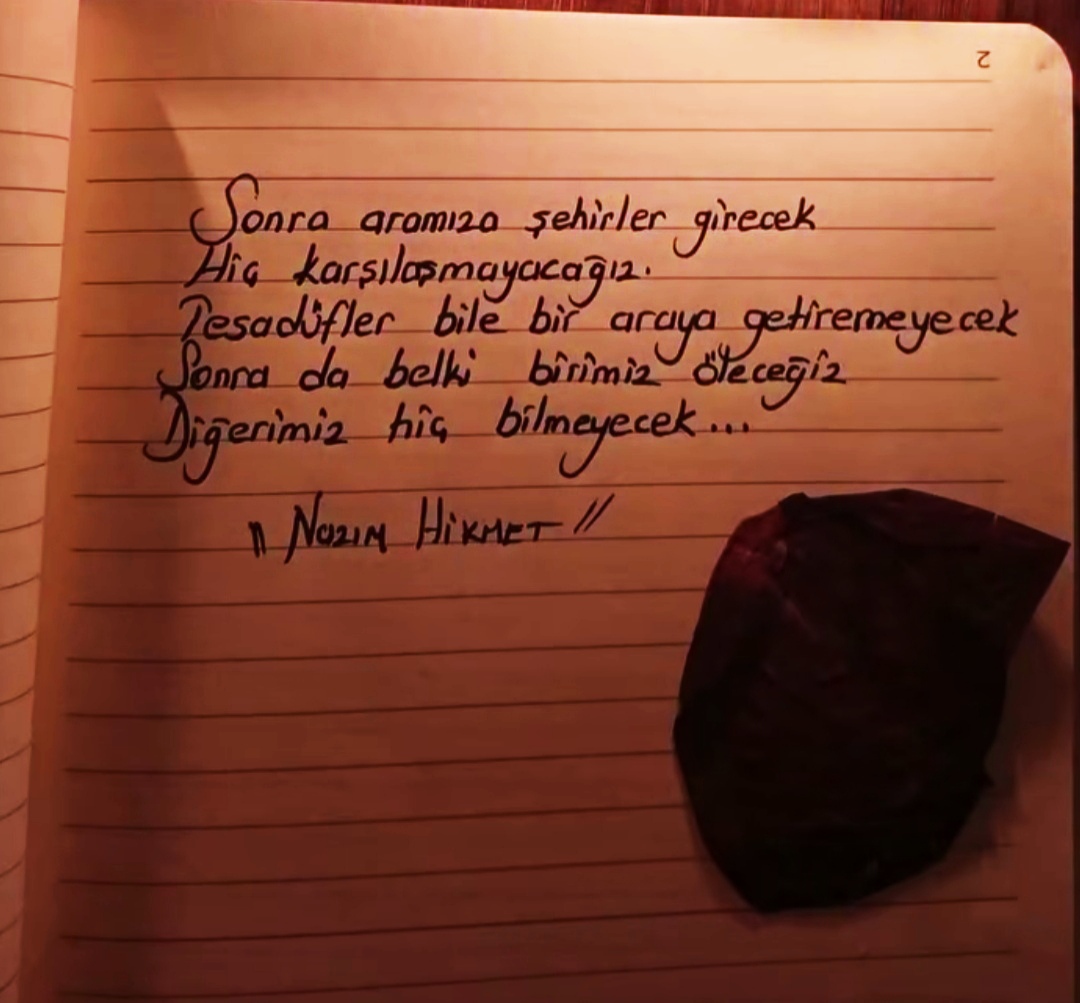 2
Sonra aramıza şehirler girecek
Hiç karşılaşmayacağız.
Tesadüfler bile bir araya getiremeyecek
Sonra da belki birimiz öleceğiz
Diğerimiz hiç bilmeyecek...
" NAZIM HİKMET "